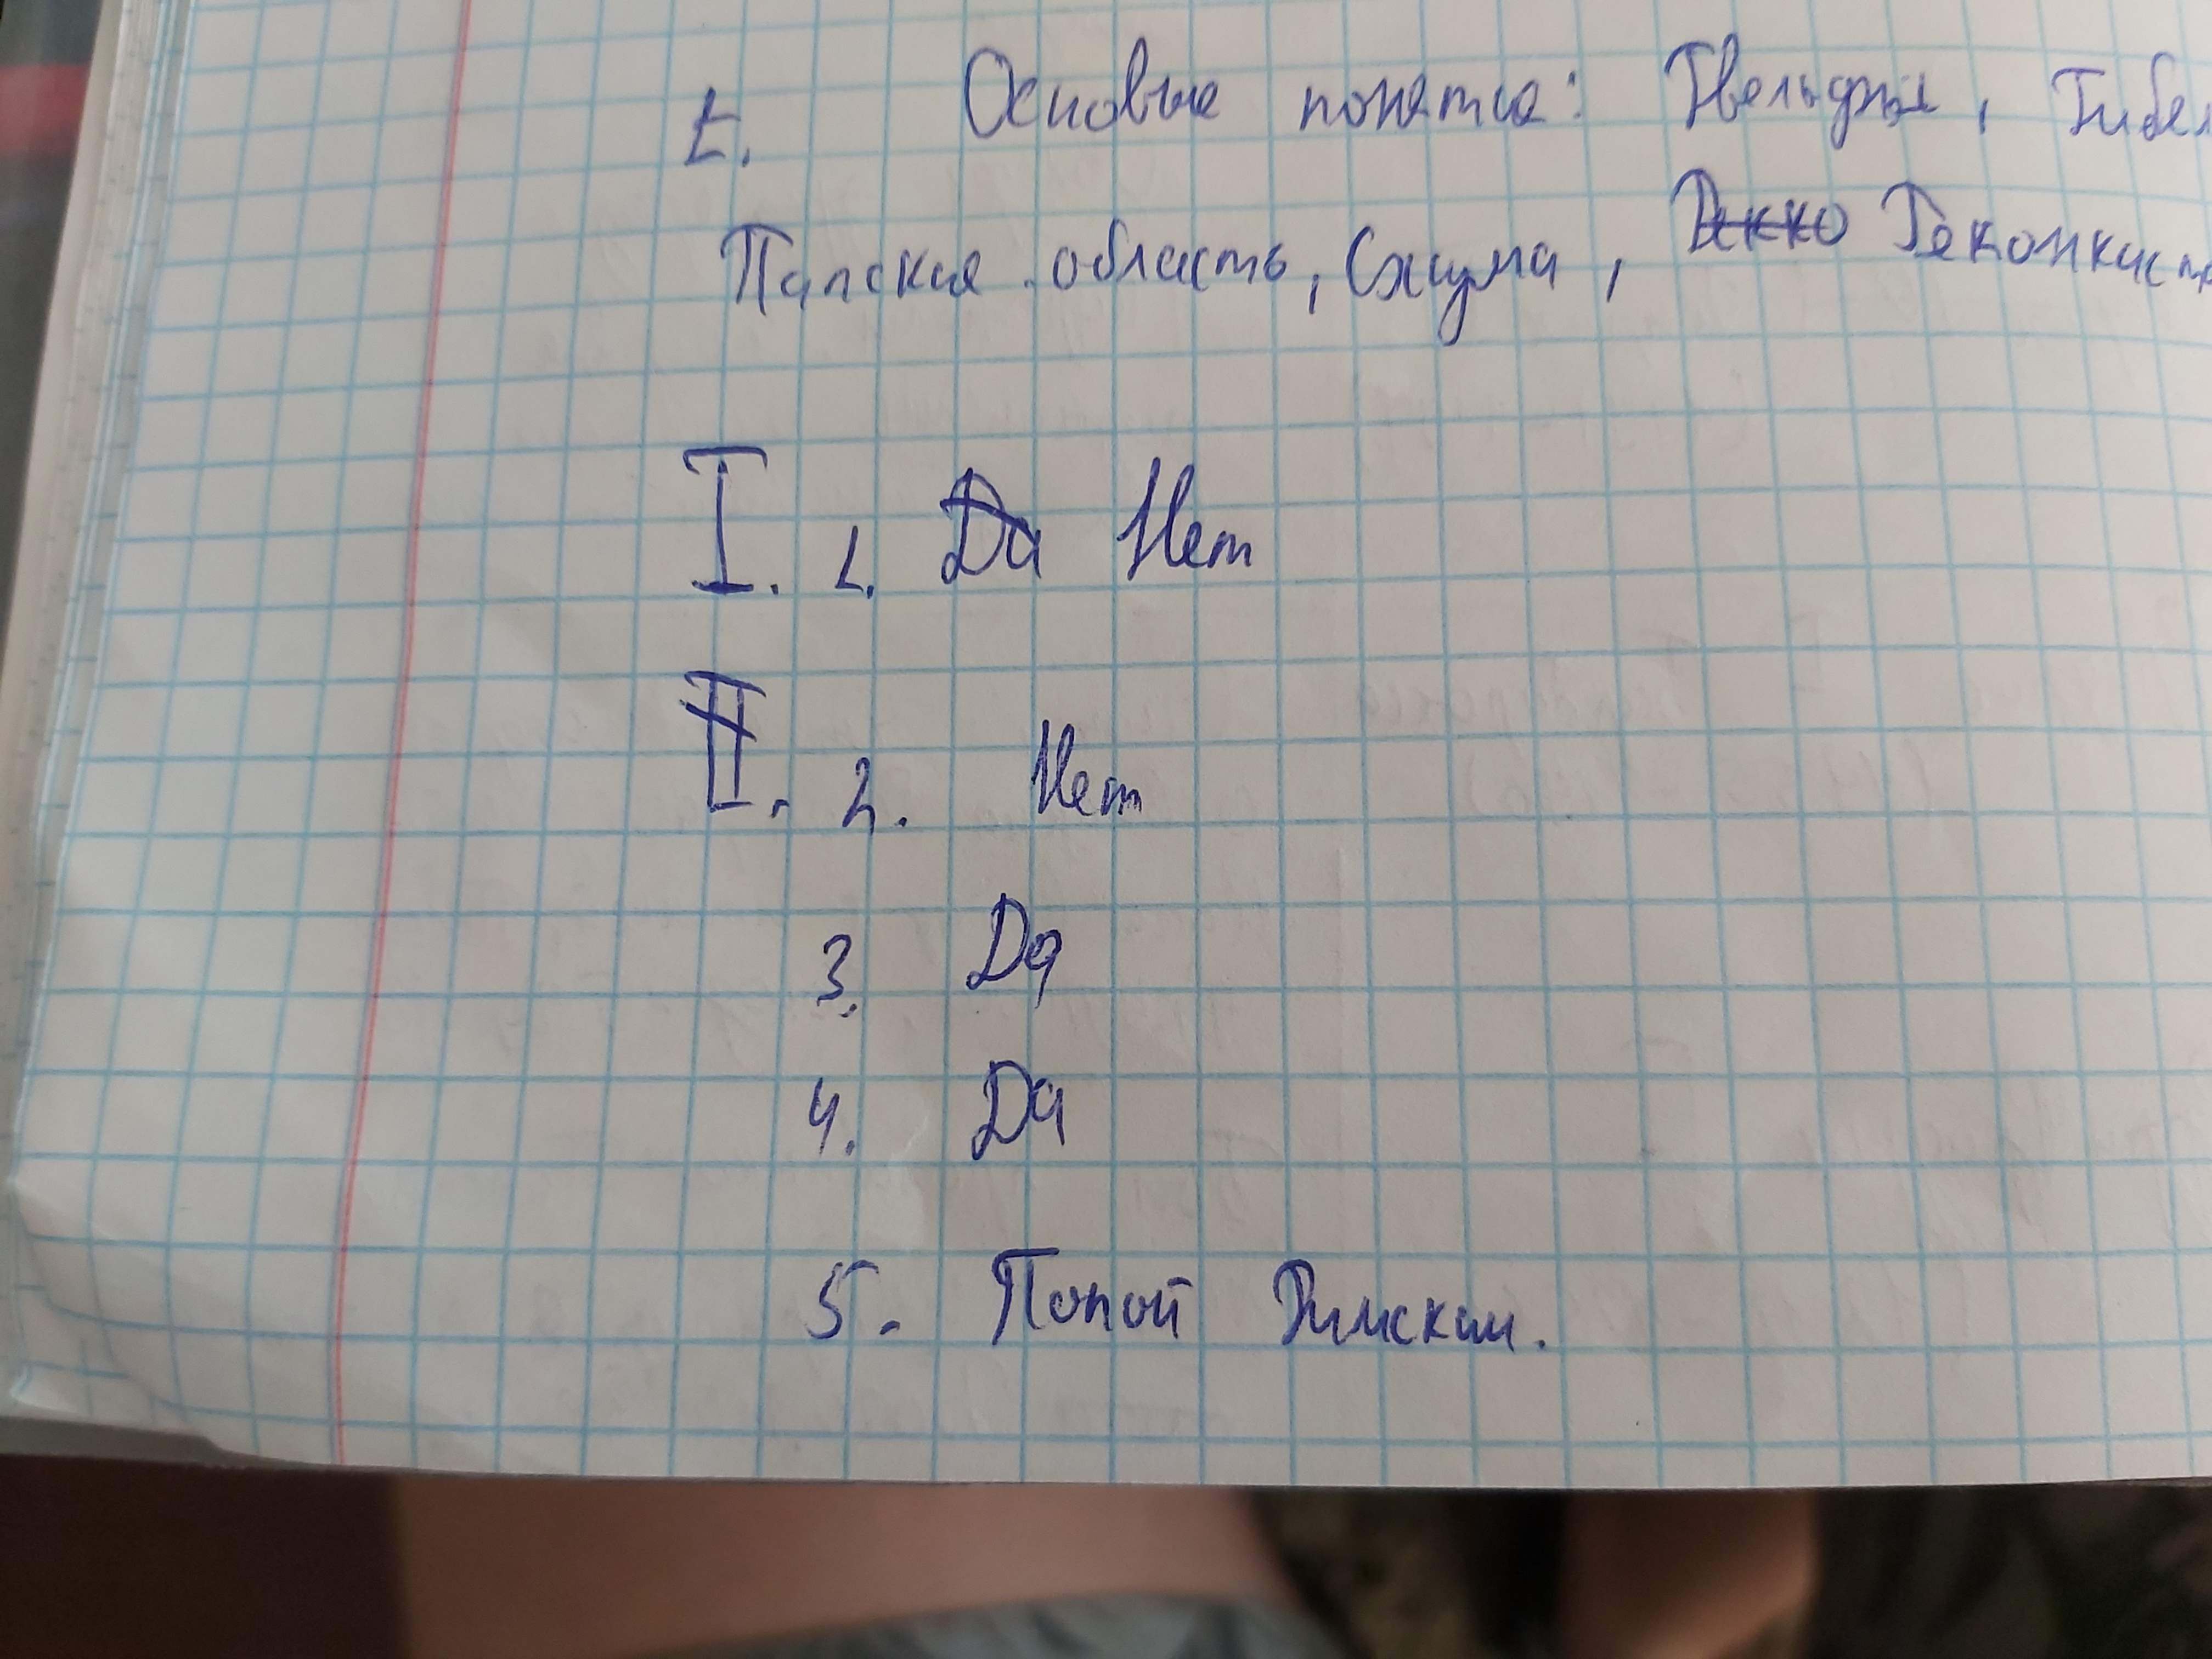 1. Основые понятие: Гвельфы, Гибел
Папская область, Схизма, Рекко Реконкист
I. 1. Да Нет
II. 2. Нет
3. Да
4. Да
5. Попой Римским.